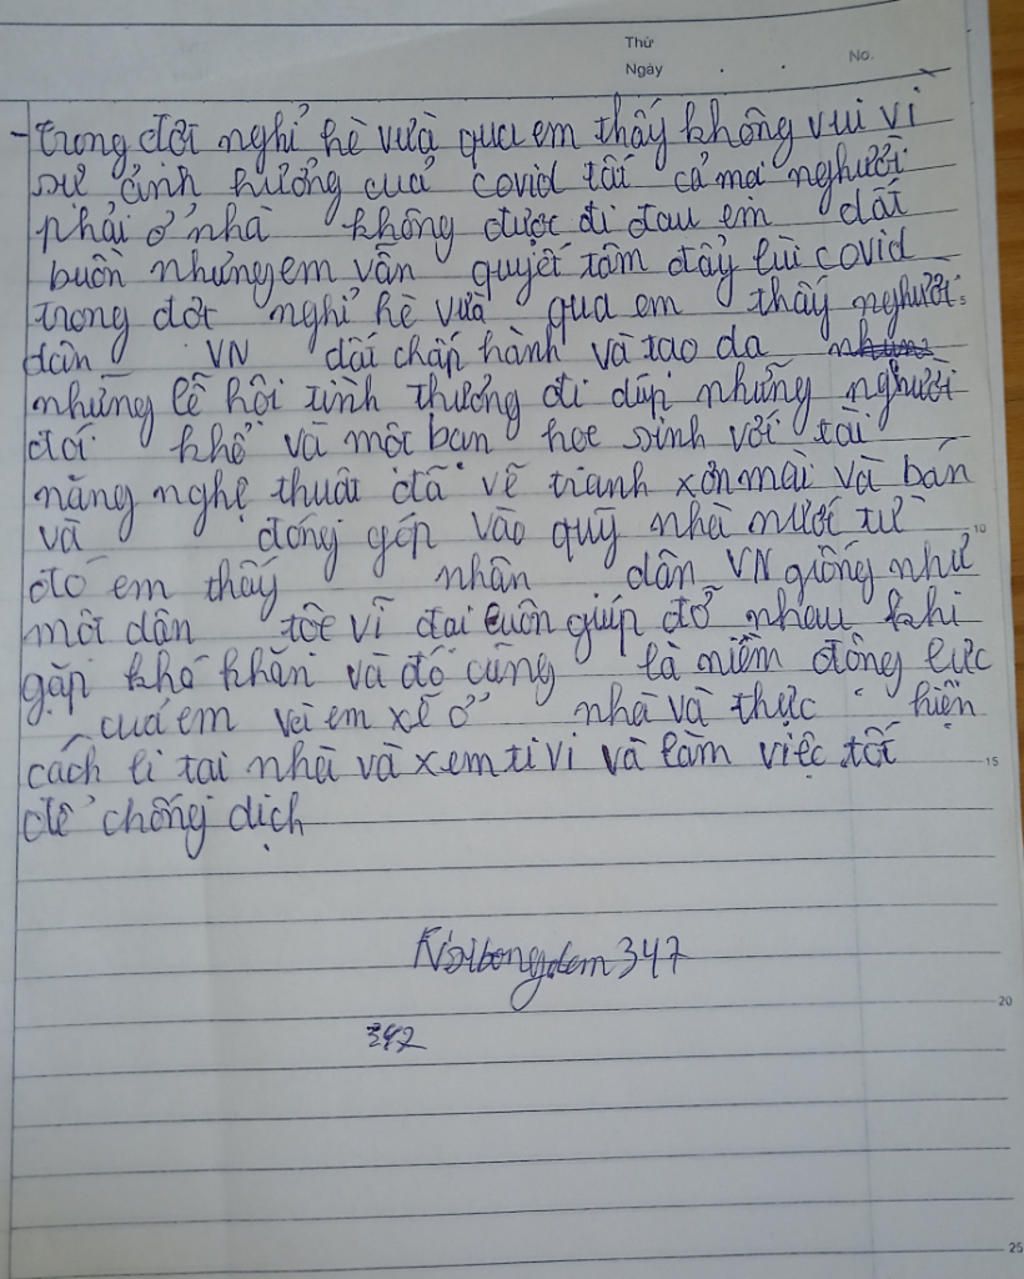 Thứ
Ngày . . No.
- trong đời nghỉ hè vừa qua em thấy không vui vì
sự ảnh hưởng của covid tất cả mọi người
phải ở nhà không được đi đau em dất
buồn nhưng em vẫn quyết tâm đẩy lùi covid
trong đợt nghỉ hè vừa qua em thấy nghười
dân VN dất chấp hành và tạo da
những lễ hội tình thương đi dúp những nghười
đói khổ và một bạn học sinh với tài
năng nghệ thuật đã vẽ tranh xơn mài và bán
và đóng góp vào quỹ nhà nước từ
đó em thấy nhân dân VN giống như
một dân tộc vĩ đại luôn giúp đỡ nhau khi
gặp khó khăn và đó cũng là niềm động lực
của em vơi em xẽ ở nhà và thực hiện
cách li tại nhà và xem ti vi và làm việc tốt
để chống dịch
347
347
10
15
20
25